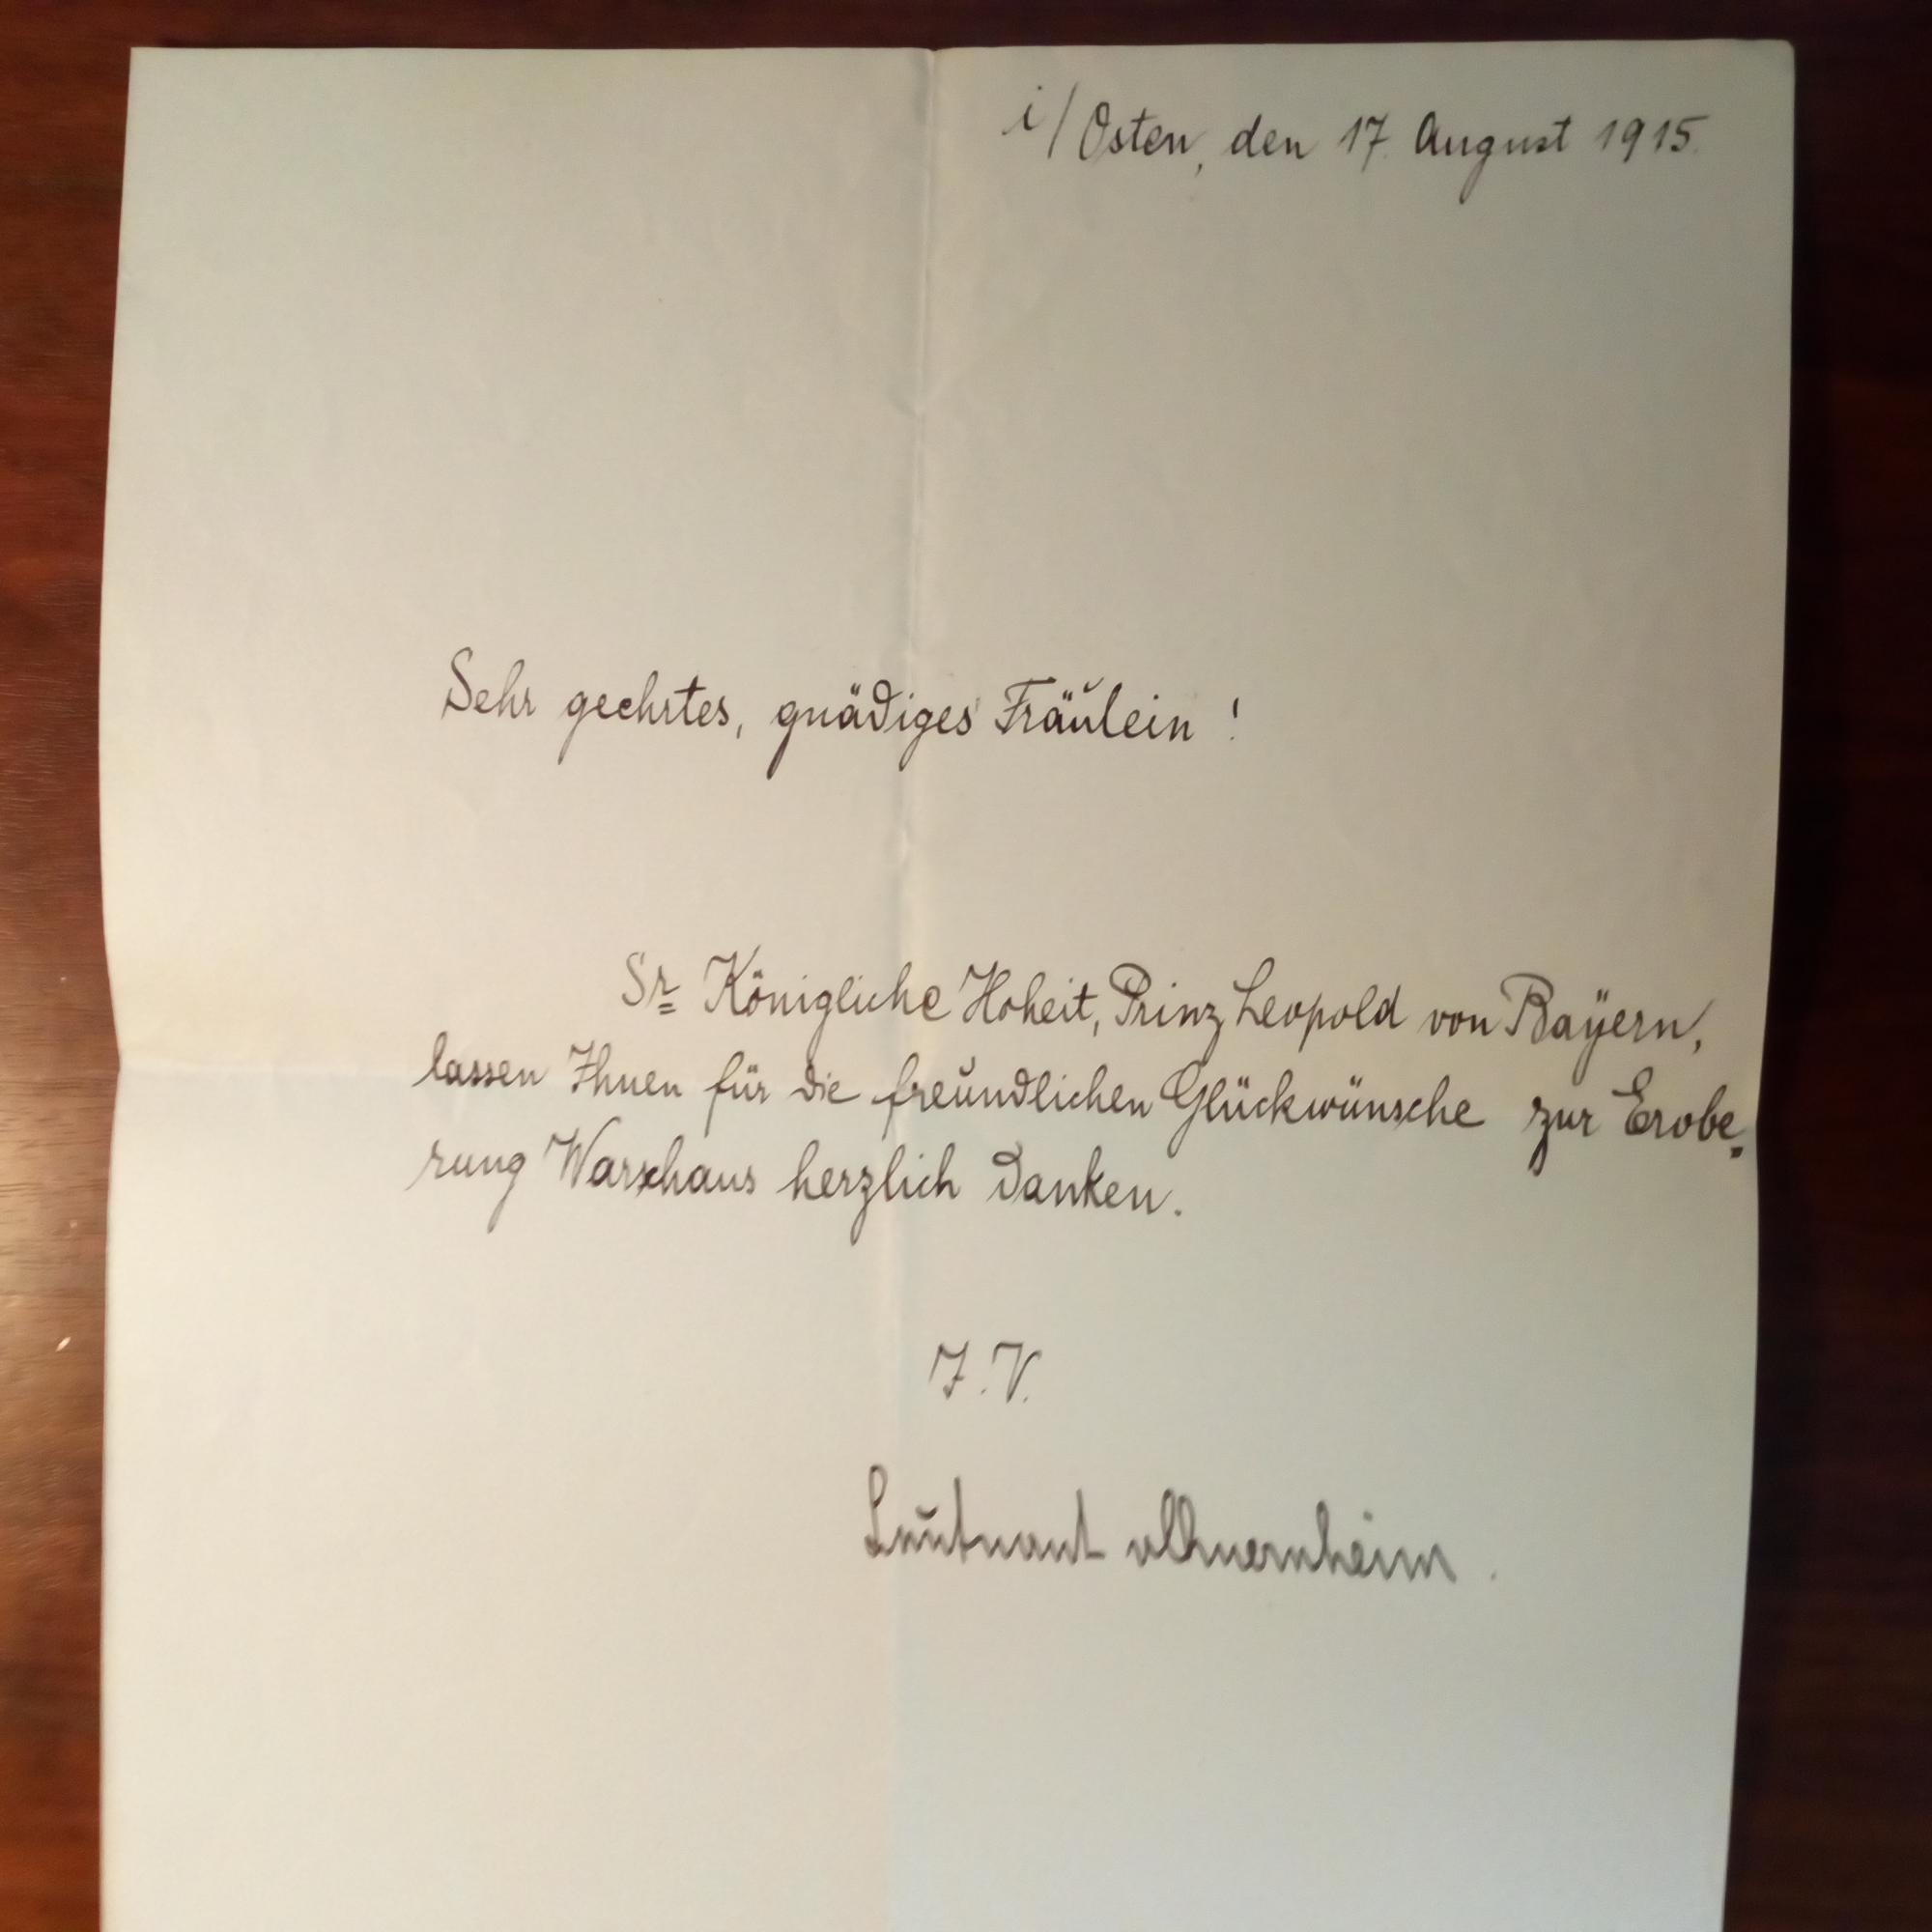 i/Osten, den 17. August 1915.
Sehr geehrtes, gnädiges Fräulein!
Sr. Königliche Hoheit, Prinz Leopold von Bayern,
lassen Ihnen für die freundlichen Glückwünsche zur Erobe-
rung Warschaus herzlich danken.
I.V.
Leutnant